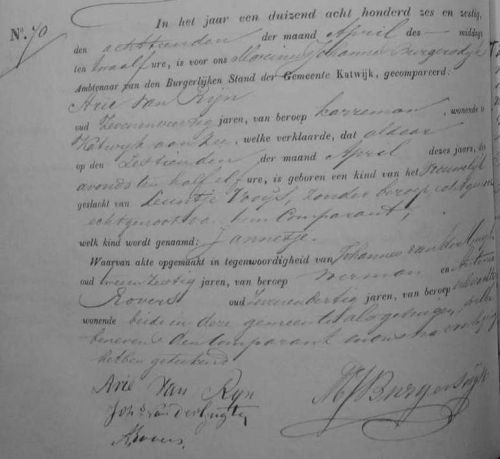 No. 70
In het jaar een duizend acht honderd zes en zestig,
den achttienden der maand April des middags
ten twaalf ure, is voor ons Marinus Johannes Burgersdijk
Ambtenaar van den Burgerlijken Stand der Gemeente Katwijk, gecompareerd:
Arie van Rijn
oud zevenenveertig jaren, van beroep karreman, wonende te
Katwijk aan Zee, welke verklaarde, dat aldaar
op den zestienden der maand April dezes jaars, des
avonds ten half elf ure, is geboren een kind van het Vrouwelijk
geslacht van Leuntje Vooijs, zonder beroep
echtgenoot van hem Comparant,
welk kind wordt genaamd: Jannetje.
Waarvan akte opgemaakt in tegenwoordigheid van Johannes van der
oud jaren, van beroep en
Rovers oud jaren, van beroep
wonende beide in deze gemeente als getuigen,
benevens den Comparant
hebben geteekend
Arie van Rijn
MJBurgersdijk